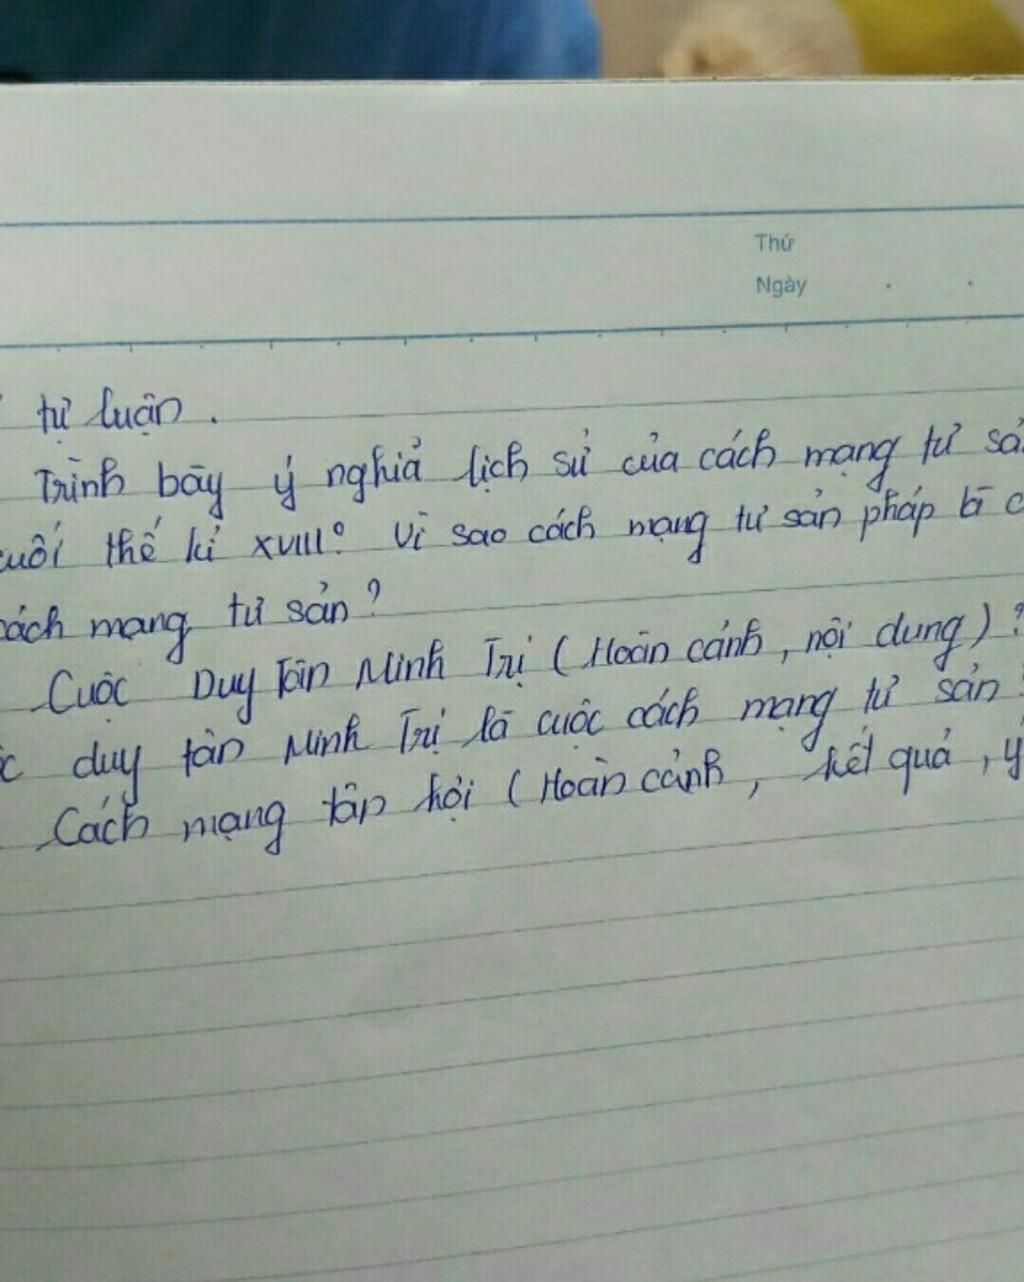 Thứ
Ngày
tự luận.
Trình bày ý nghĩa lịch sử của cách mạng tư
cuối thế kỉ XVIII? Vì sao cách mạng tư sản pháp
cách mạng tư sản?
Cuộc Duy Tân Minh Trị (Hoàn cảnh, nội dung)?
duy tân Minh Trị là cuộc cách mạng tư sản
Cách mạng tân hợi (Hoàn cảnh, kết quả, ý